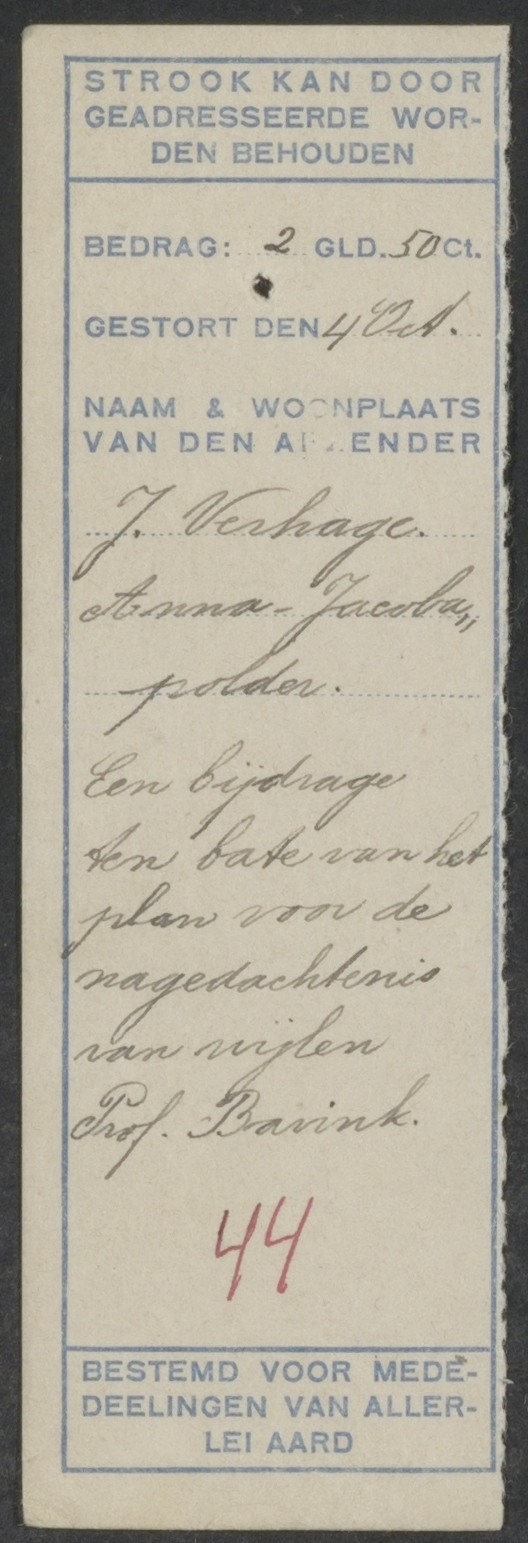 STROOK KAN DOOR
GEADRESSEERDE WOR-
DEN BEHOUDEN
BEDRAG: 2 GLD. 50 Ct.
GESTORT DEN 4 Oct.
NAAM & WOONPLAATS
VAN DEN AFZENDER
J. Verhage.
Anna-Jacoba„
polder.
Een bijdrage
ten bate van het
plan voor de
nagedachtenis
van wijlen
Prof. Bavink.
44
BESTEMD VOOR MEDE-
DEELINGEN VAN ALLER-
LEI AARD